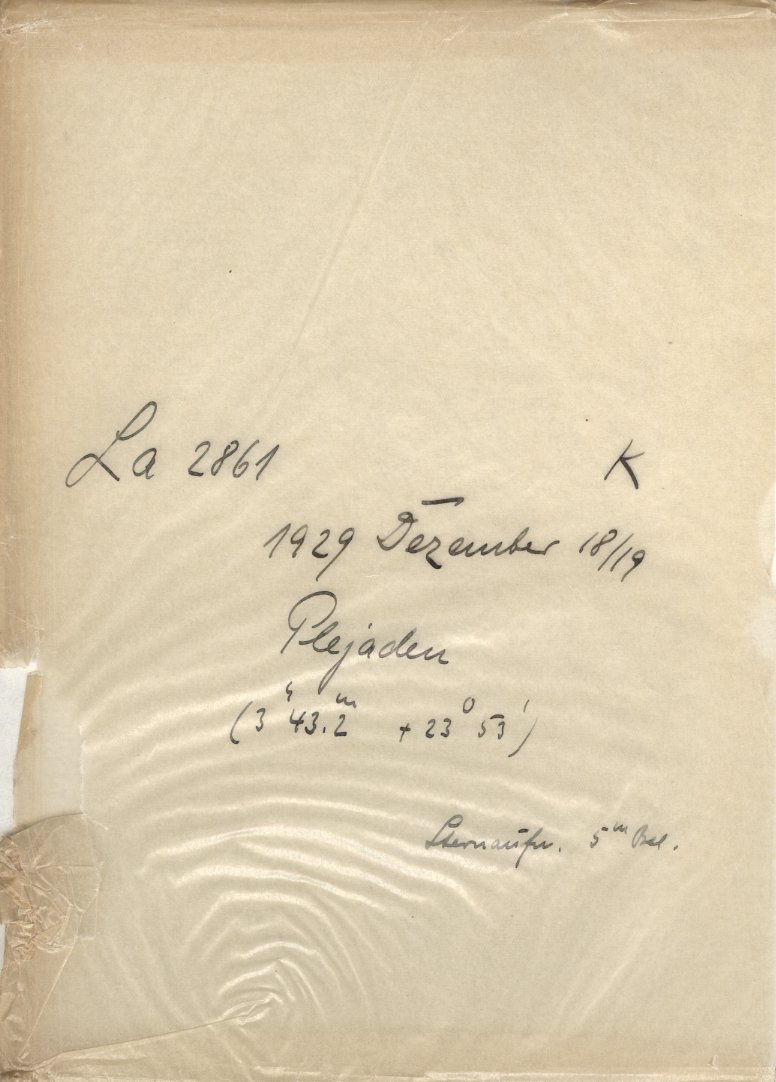 La 2861 K
1929 Dezember 18/19
Plejaden
(3ʰ 43.2ᵐ + 23⁰ 53')
Sternaufn. 5ᵐ Bel.